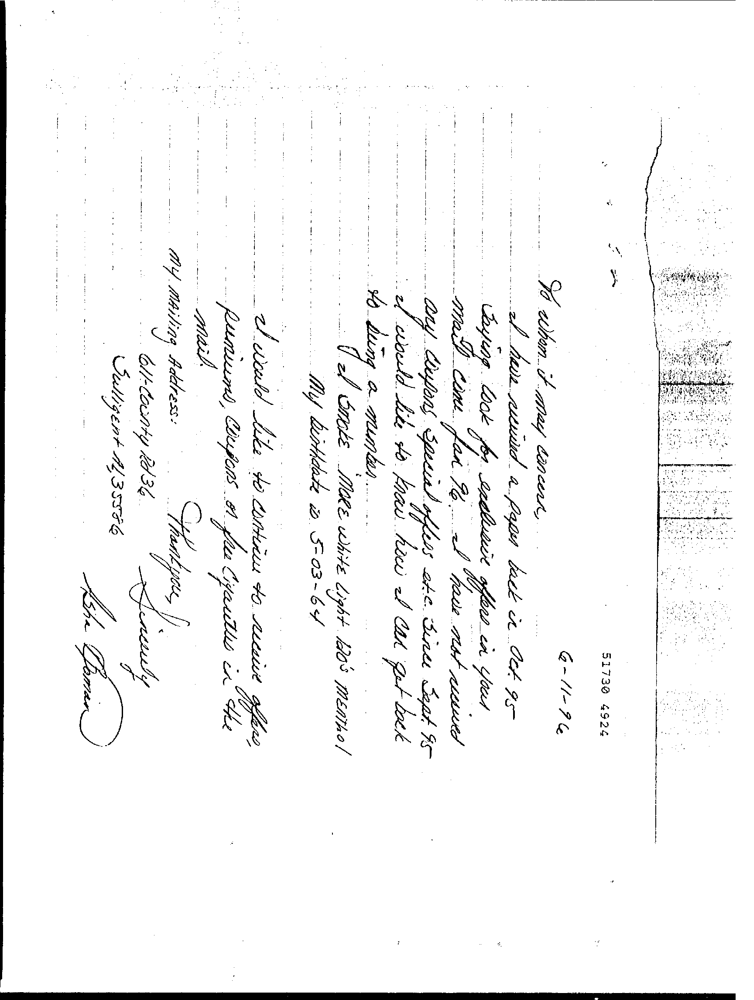 51730 4924
6-11-96
To whom it may concern,
I have recived a paper back in Oct. 95
saying look for exclusive offers in your
mail come Jan 96. I have not recived
any coupons, special offers etc. since Sept. 95
I would like to know how I can get back
to being a member.
I smoke MORE White Light 120's menthol
My birthdate is 5-03-64
I would like to continue to receive offers,
premiums, coupons or free cigarettes in the
mail.
Thankyou,
My mailing Address: Sincerely
611-County Rd 36
Sulligent Al, 35586